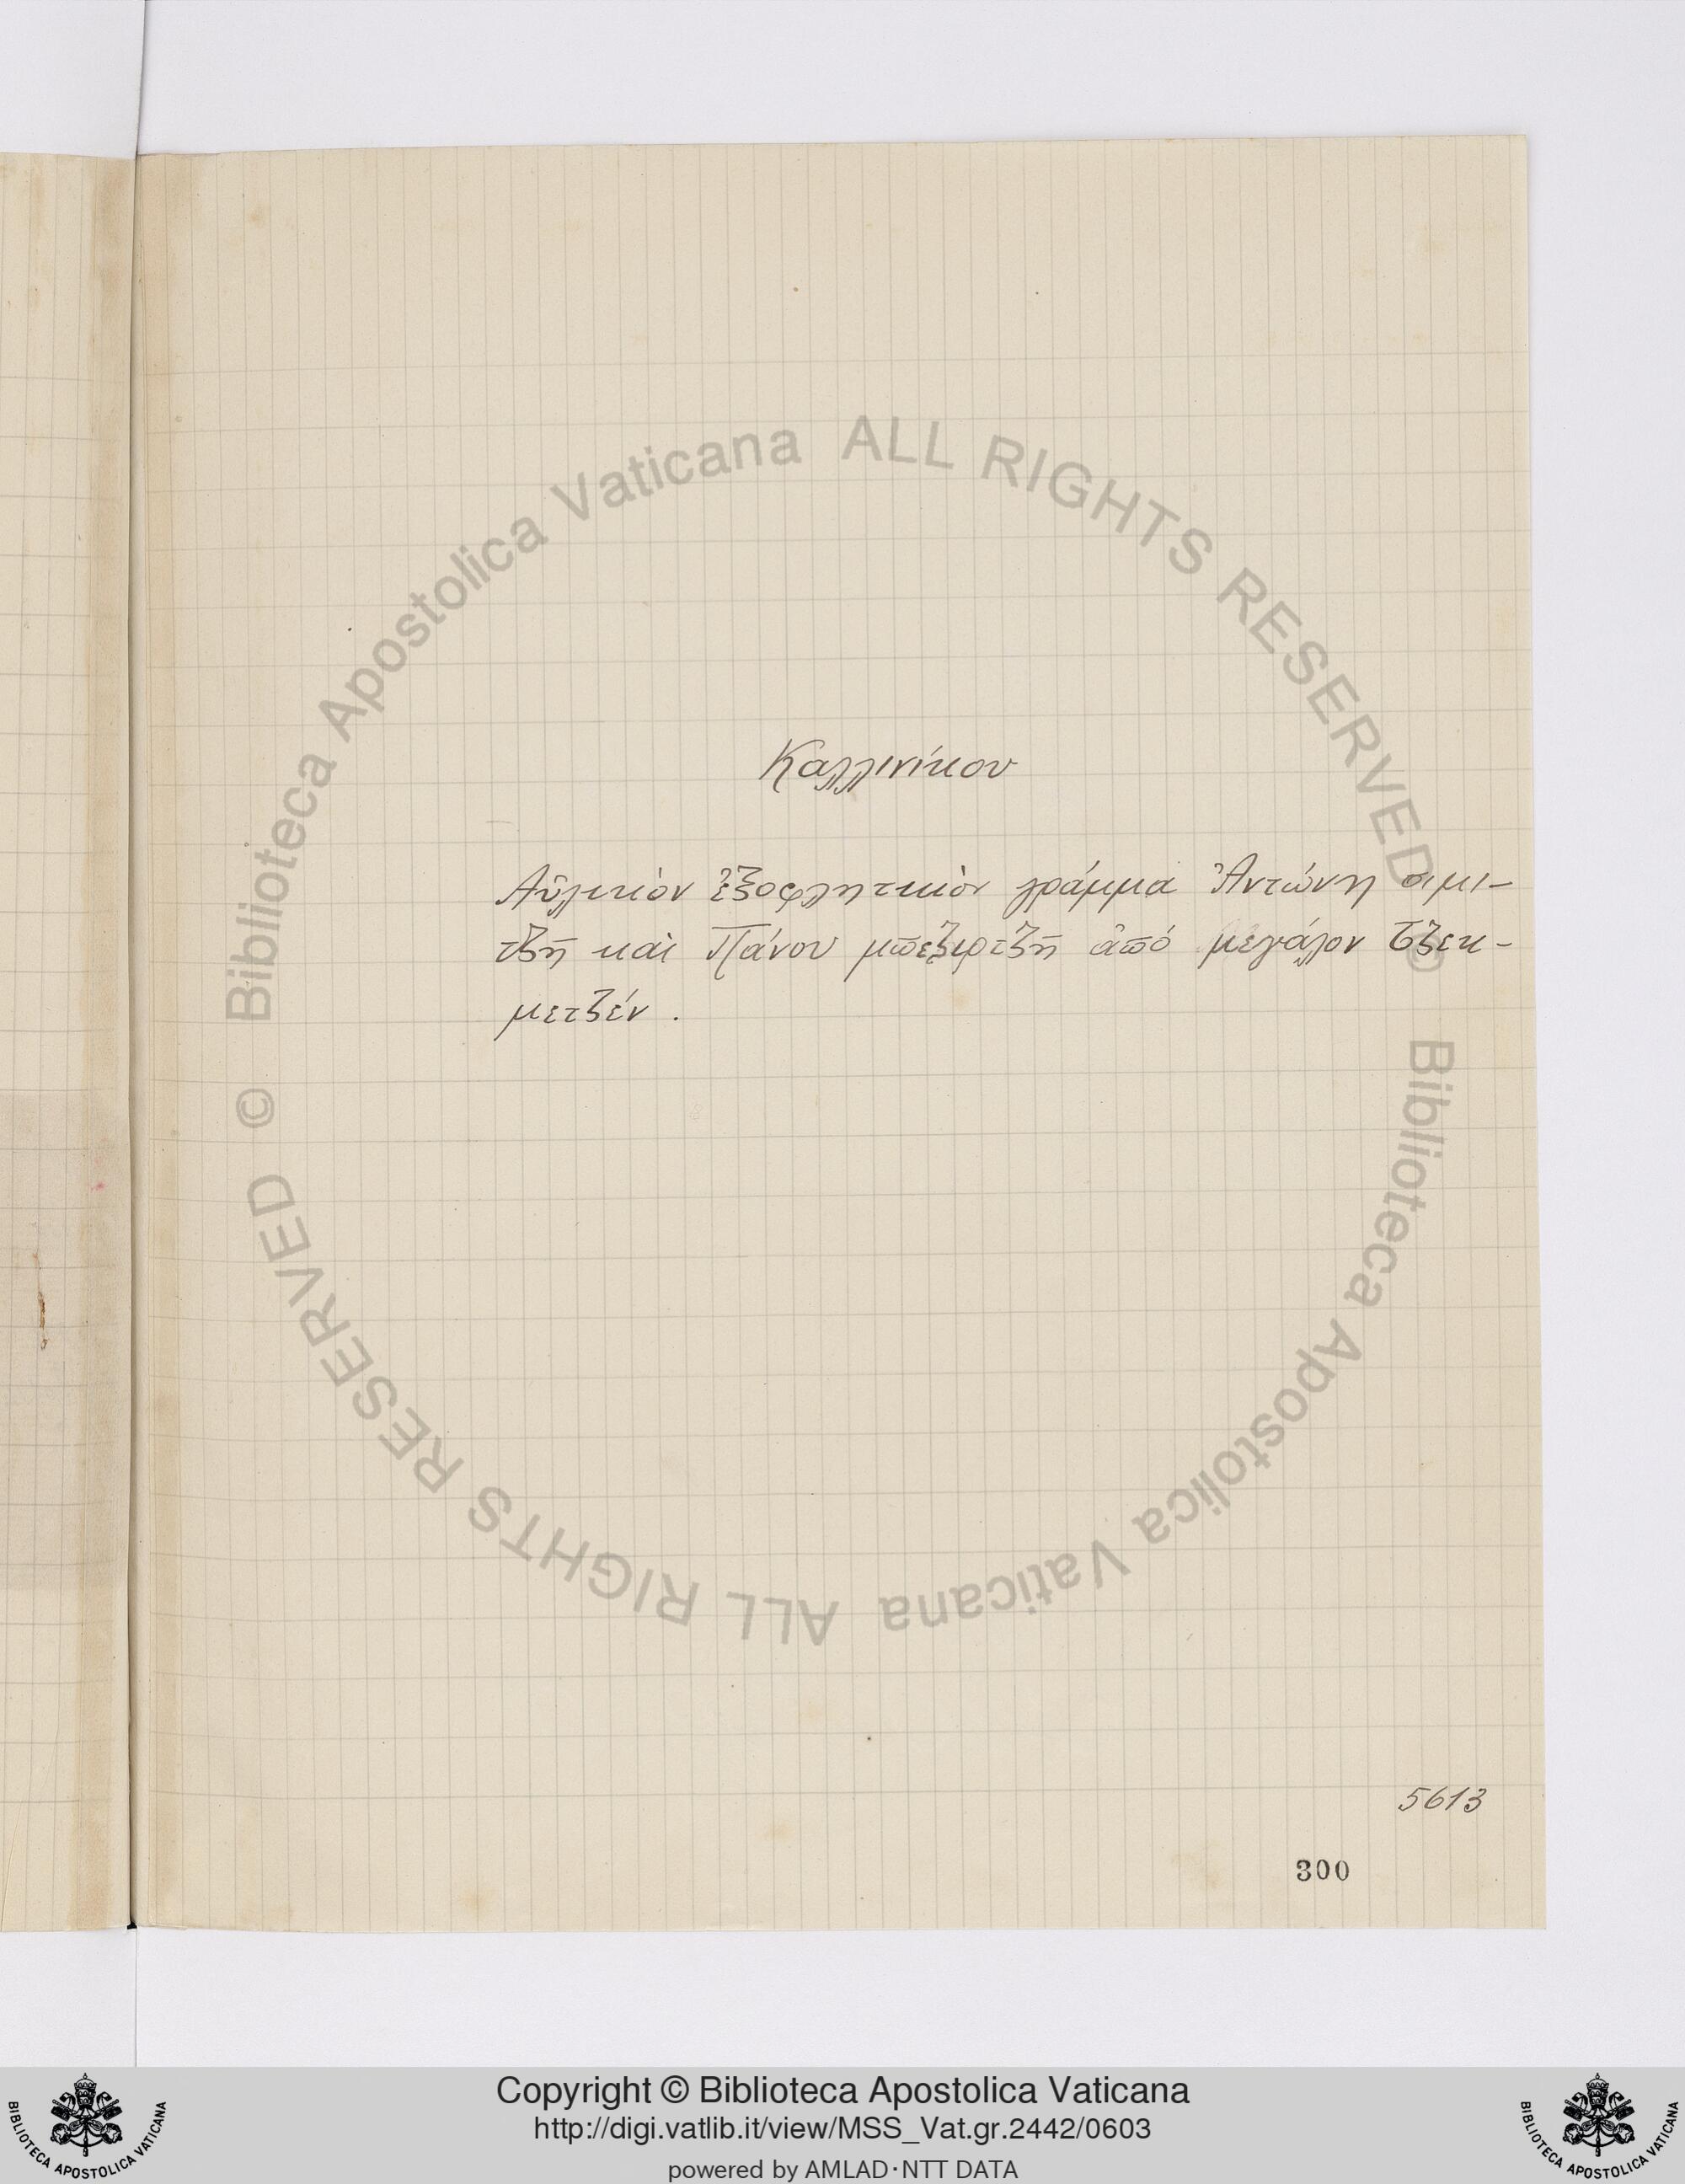 Καλλινίκου
Αὐλικὸν ἐξοφλητικὸν γράμμα Ἀντώνη σιμι-
τζῆ καὶ Πάνου μπεζιρτζῆ ἀπό μεγάλον Τζεκ-
μετζέν .
5613
300
Biblioteca Apostolica Vaticana ALL RIGHTS RESERVED ©
Biblioteca Apostolica Vaticana ALL RIGHTS RESERVED ©
Copyright © Biblioteca Apostolica Vaticana
http://digi.vatlib.it/view/MSS_Vat.gr.2442/0603
powered by AMLAD·NTT DATA
BIBLIOTECA APOSTOLICA VATICANA
BIBLIOTECA APOSTOLICA VATICANA